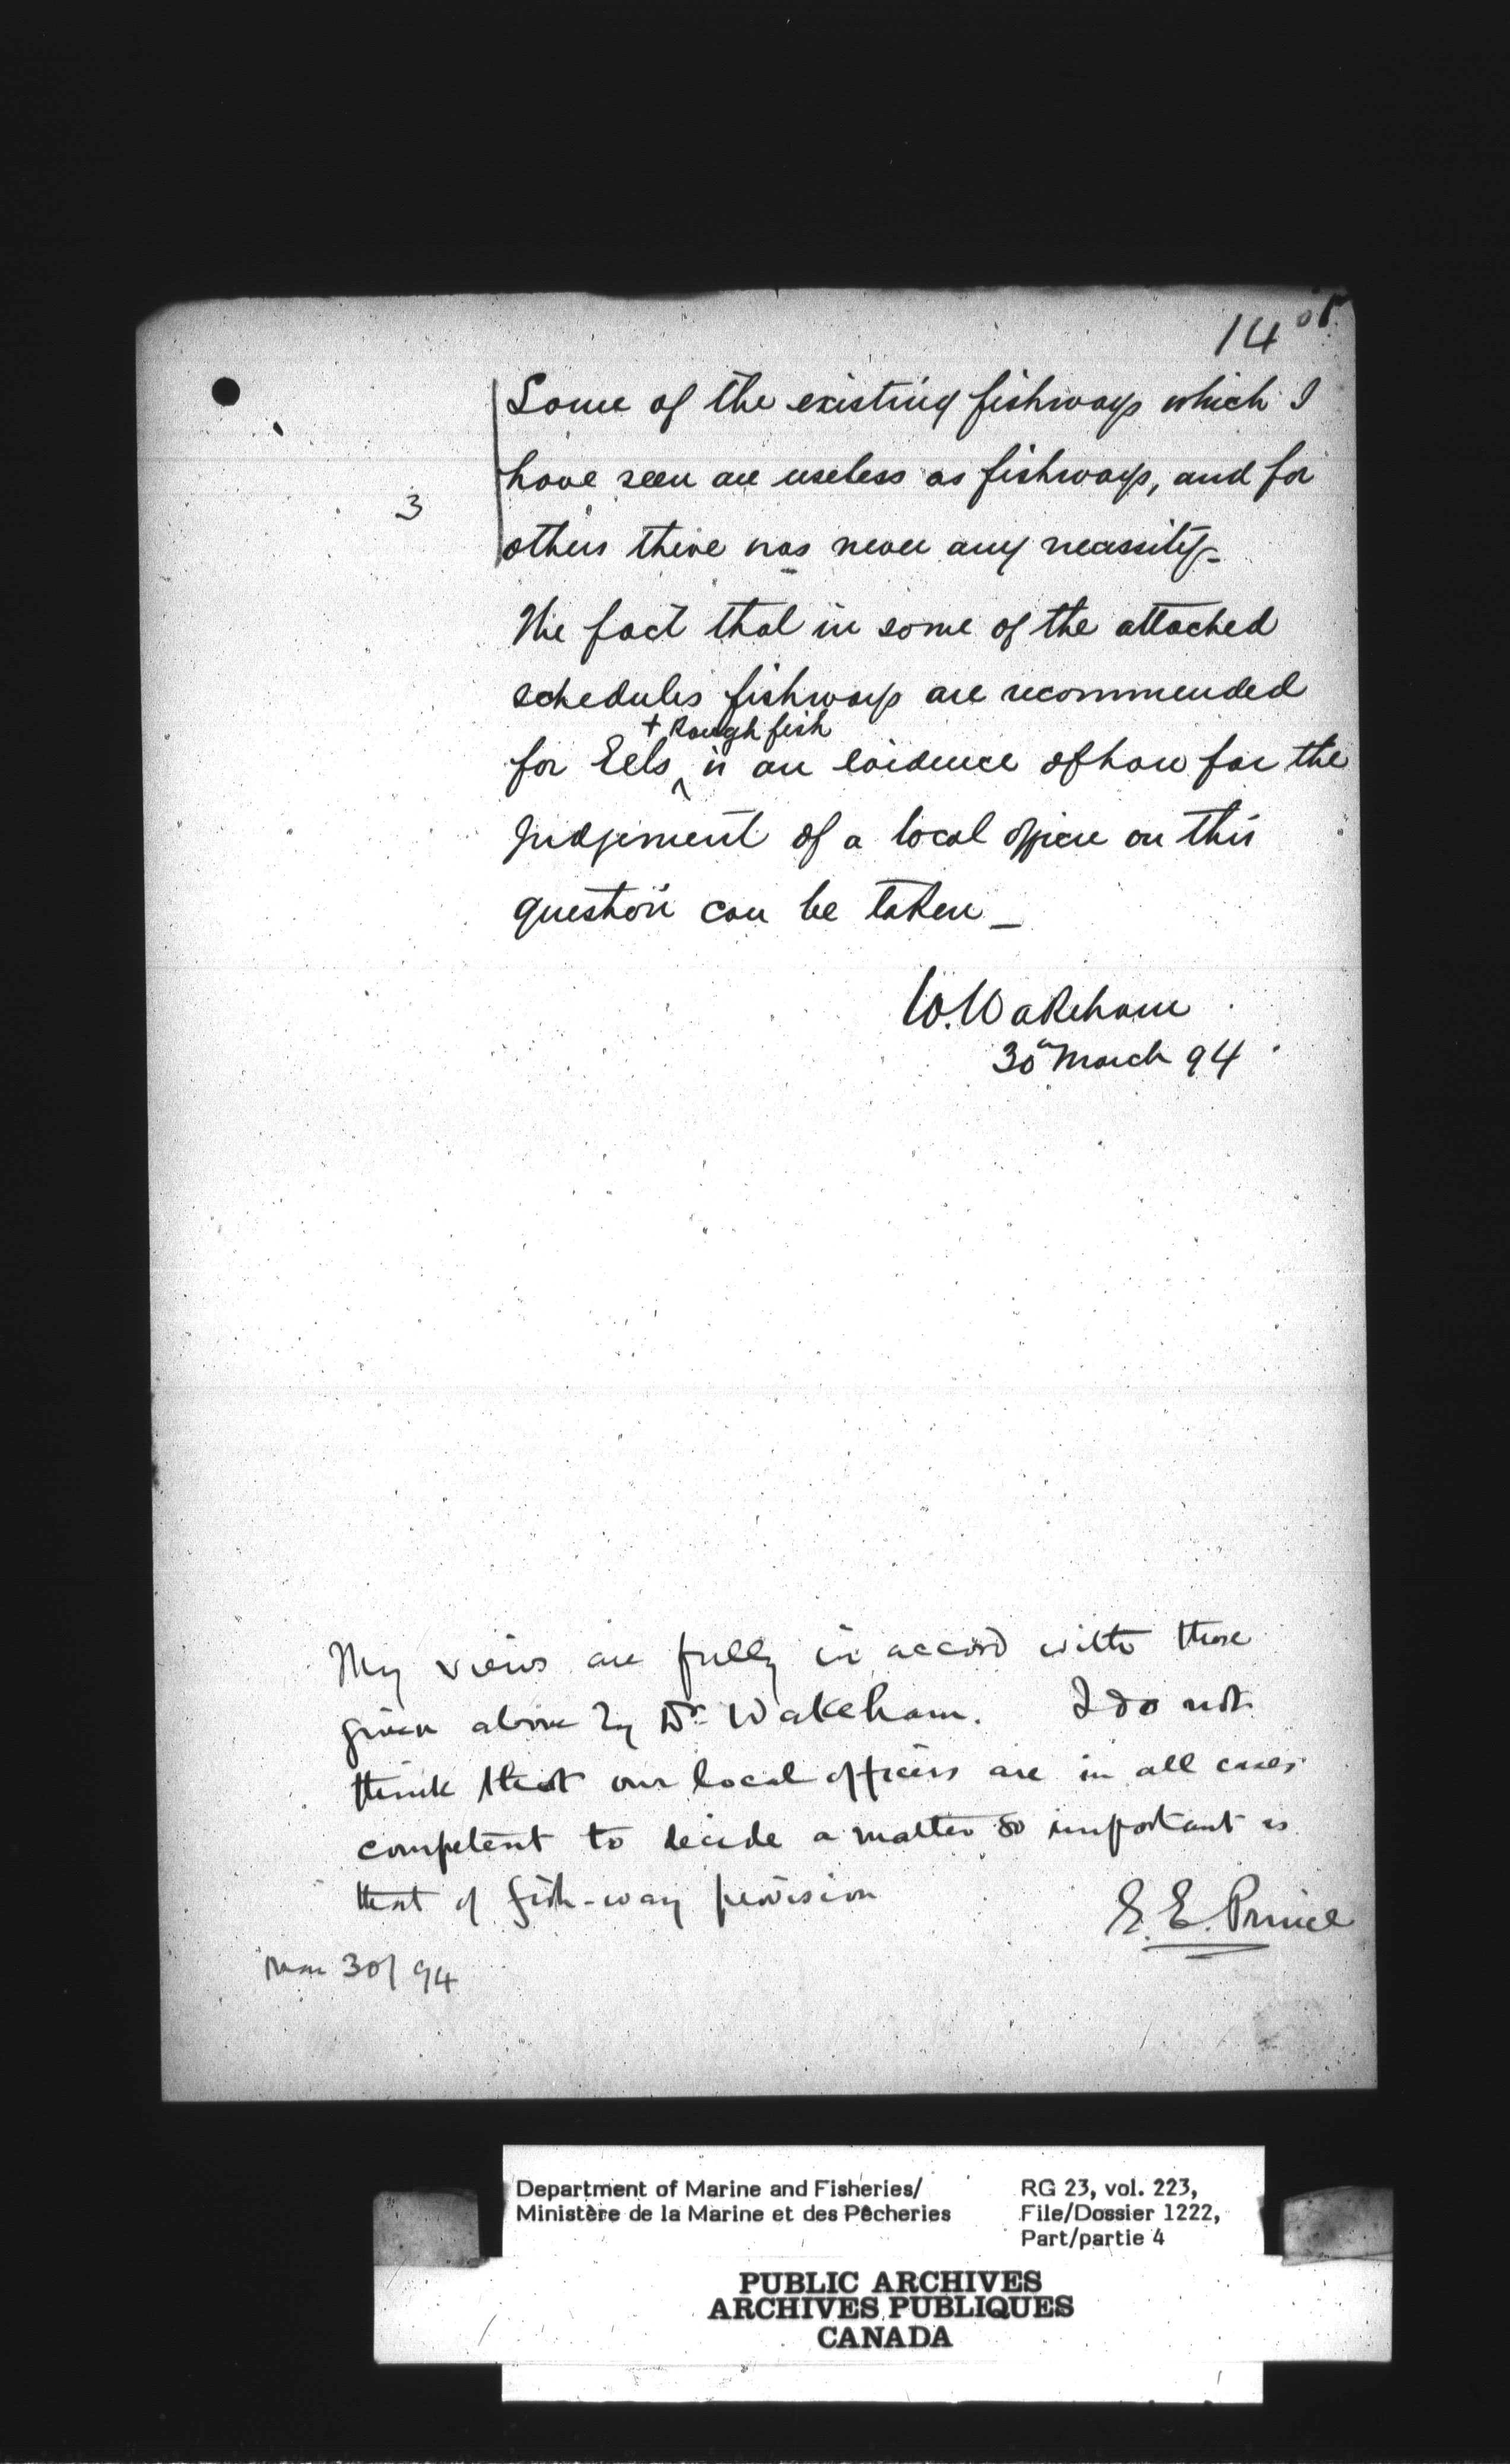 14
Some of the existing fishways which I
have seen are useless as fishways, and for
3
others there was never any necessity –
The fact that in some of the attached
schedules fishways are recommended
+ Rough fish
for Eels ^ is an evidence of how far the
judgement of a local officer on this
question can be taken –
W. Wakeham
30th March 94
My views are fully in accord with those
given above by Dr. Wakeham. I do not
think that our local officers are in all cases
competent to decide a matter so important as
that of fish-way provision
E. E. Prince
Mar 30/94
Department of Marine and Fisheries/
Ministère de la Marine et des Pêcheries
RG 23, vol. 223,
File/Dossier 1222,
Part/partie 4
PUBLIC ARCHIVES
ARCHIVES PUBLIQUES
CANADA